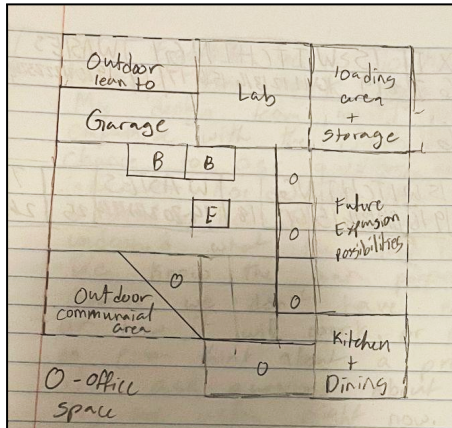 Outdoor
lean to
Lab
loading
area
+
storage
Garage
B
B
O
E
O
Future
Expansion
possibilities
O
O
Outdoor
communaial
area
Kitchen
+
Dining
O
O - office
space